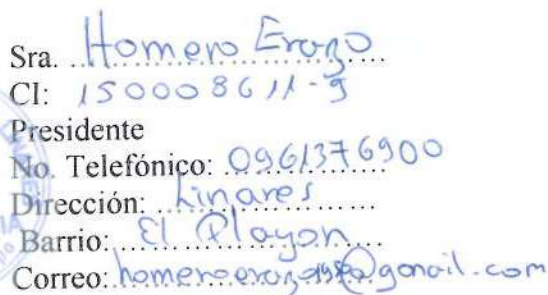 Sra. Homero Erazo
CI: 150008611-9
Presidente
No. Telefónico: 0961376900
Dirección: Linares
Barrio: El Playon
Correo: @gmail.com